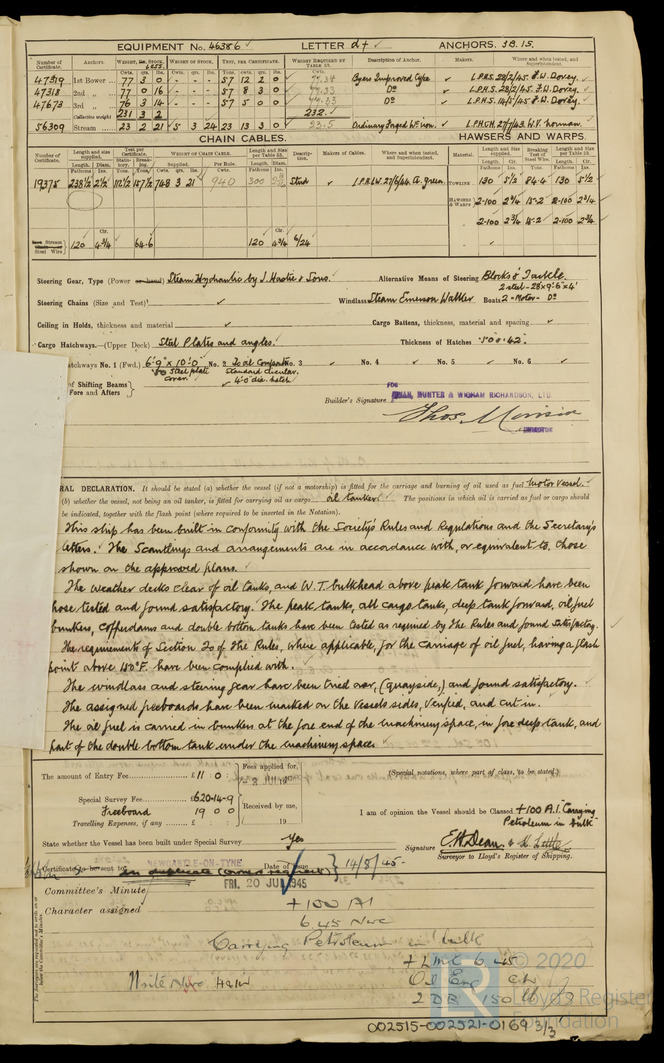 EQUIPMENT No. 46386 LETTER d† ANCHORS. 3B.15.
Number of Certificate. Anchors. WEIGHT, Ex. STOCK. WEIGHT OF STOCK. TEST, PER CERTIFICATE. WEIGHT REQUIRED BY TABLE 53. Description of Anchor. Makers. Where and when tested, and Superintendent.
Cwts. qrs. lbs. Cwts. qrs. lbs. Tons. cwt. qrs. lbs. Cwts.
47319 1st Bower 77 3 0 - - - 57 12 2 0 Byers Improved Type L.P.H.S. 28/2/45. F.W. Dovey.
47318 2nd „ 77 0 16 - - - 57 8 3 0 Do L.P.H.S. 28/2/45. F.W. Dovey.
47673 3rd „ 76 3 14 - - - 57 5 0 0 Do L.P.H.S. 14/5/45 F.W. Dovey.
Collective weight 231 3 2 232.
56309 Stream 23 2 21 5 3 24 23 13 3 0 23.5 Ordinary Forged Wt iron.
CHAIN CABLES. HAWSERS AND WARPS.
Number of Certificate. Length and size supplied. Test per Certificate. WEIGHT OF CHAIN CABLE. Length and Size per Table 53. Description. Makers of Cables. Where and when tested, and Superintendent. Material. Length and Size supplied. Breaking Test of Steel Wire. Length and Size per Table 53.
Fathoms Ins. Tons Tons Cwts. qrs. lbs. Cwts. Fathoms Ins. Fathoms Ins. Tons Fathoms Ins.
19375 238½ 2½ 112½ 157½ 748 3 21 940 300 Stud A. Green. TOWLINE 130 5½ 84.4 130 5½
HAWSERS & WARPS 2-100 2¾ 15.2 2-100 2¾
„ 2-100 2¾ 15.2 2-100 2¾
Stream Steel Wire 120 4¾ 64.6 120 4¾ 6/24
Steering Gear, Type (Power or hand) Steam Hydraulic by J. Hastie & Sons. Alternative Means of Steering Blocks & Tackle.
2 steel - 28' x 9'.6" x 4'
Steering Chains (Size and Test) Windlass Steam Emerson Walker Boats 2 - Motor - Do
Ceiling in Holds, thickness and material Cargo Battens, thickness, material and spacing
Cargo Hatchways.—(Upper Deck) Steel Plates and angles. Thickness of Hatches .50 & .42.
Hatchways No. 1 (Fwd.) 6'.9" x 10'.0" No. 2 20 oil Compartments No. 3 No. 4 No. 5 No. 6
steel plate cover. standard circular. 4'.0 dia. hatch
of Shifting Beams
Fore and Afters
FOR
SWAN, HUNTER & WIGHAM RICHARDSON, LTD.
Builder's Signature Thos Morison
DIRECTOR
RAL DECLARATION. It should be stated (a) whether the vessel (if not a motorship) is fitted for the carriage and burning of oil used as fuel motor vessel.
(b) whether the vessel, not being an oil tanker, is fitted for carrying oil as cargo oil tanker The positions in which oil is carried as fuel or cargo should
be indicated, together with the flash point (where required to be inserted in the Notation).
This ship has been built in conformity with the Society's Rules and Regulations and the Secretary's
letters. The Scantlings and arrangements are in accordance with, or equivalent to, those
shown on the approved plans.
The weather decks clear of oil tanks, and W.T. bulkhead above peak tank forward have been
hose tested and found satisfactory. The peak tanks, all cargo tanks, deep tank forward, oil fuel
bunkers, cofferdams and double bottom tanks have been tested as required by the Rules and found satisfactory.
The requirements of Section 20 of The Rules, where applicable, for the carriage of oil fuel, having a flash
point above 150°F. have been complied with.
The windlass and steering gear have been tried over, (quayside,) and found satisfactory.
The assigned freeboards have been marked on the vessels sides, verified, and cut in.
The oil fuel is carried in bunkers at the fore end of the machinery space, in fore deep tank, and
part of the double bottom tank under the machinery space.
The amount of Entry Fee £ 11 : 0 : Fees applied for,
Special Survey Fee £620-14-9
Freeboard 19 0 0 Received by me,
Travelling Expenses, if any £ : : 19
(Special notations, where part of class, to be stated.)
I am of opinion the Vessel should be Classed +100 A.1. "Carrying
Petroleum in bulk"
State whether the Vessel has been built under Special Survey Yes
Signature E.H. Dean & H. Little
Surveyor to Lloyd's Register of Shipping.
Certificate to be sent to NEWCASTLE-ON-TYNE Date of issue 14/8/45
in duplicate (owners request)
FRI. 20 JUL 1945
Committee's Minute
Character assigned +100 A1
6.45 Nwc
Carrying Petroleum in bulk
+ LMC 6.45
Oil Eng CL
2 DB 150 lb
© 2020
Lloyd's Register
Foundation
002515-002521-0169 3/3